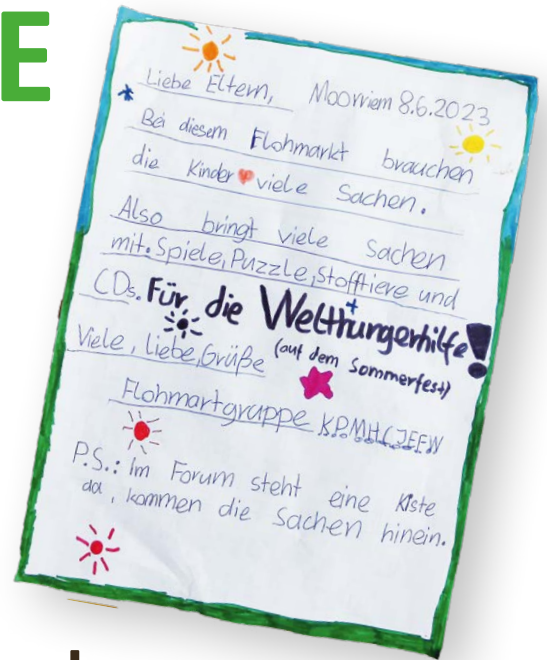 E
Liebe Eltern, Moorriem 8.6.2023
Bei diesem Flohmarkt brauchen
die Kinder viele Sachen.
Also bringt viele Sachen
mit. Spiele, Puzzle, Stofftiere und
CDs. Für die Welthungerhilfe!
(auf dem Sommerfest)
Viele, liebe, Grüße
Flohmartgruppe K.P.M.H.C.J.E.F.W
P.S.: Im Forum steht eine Kiste
da, kommen die Sachen hinein.